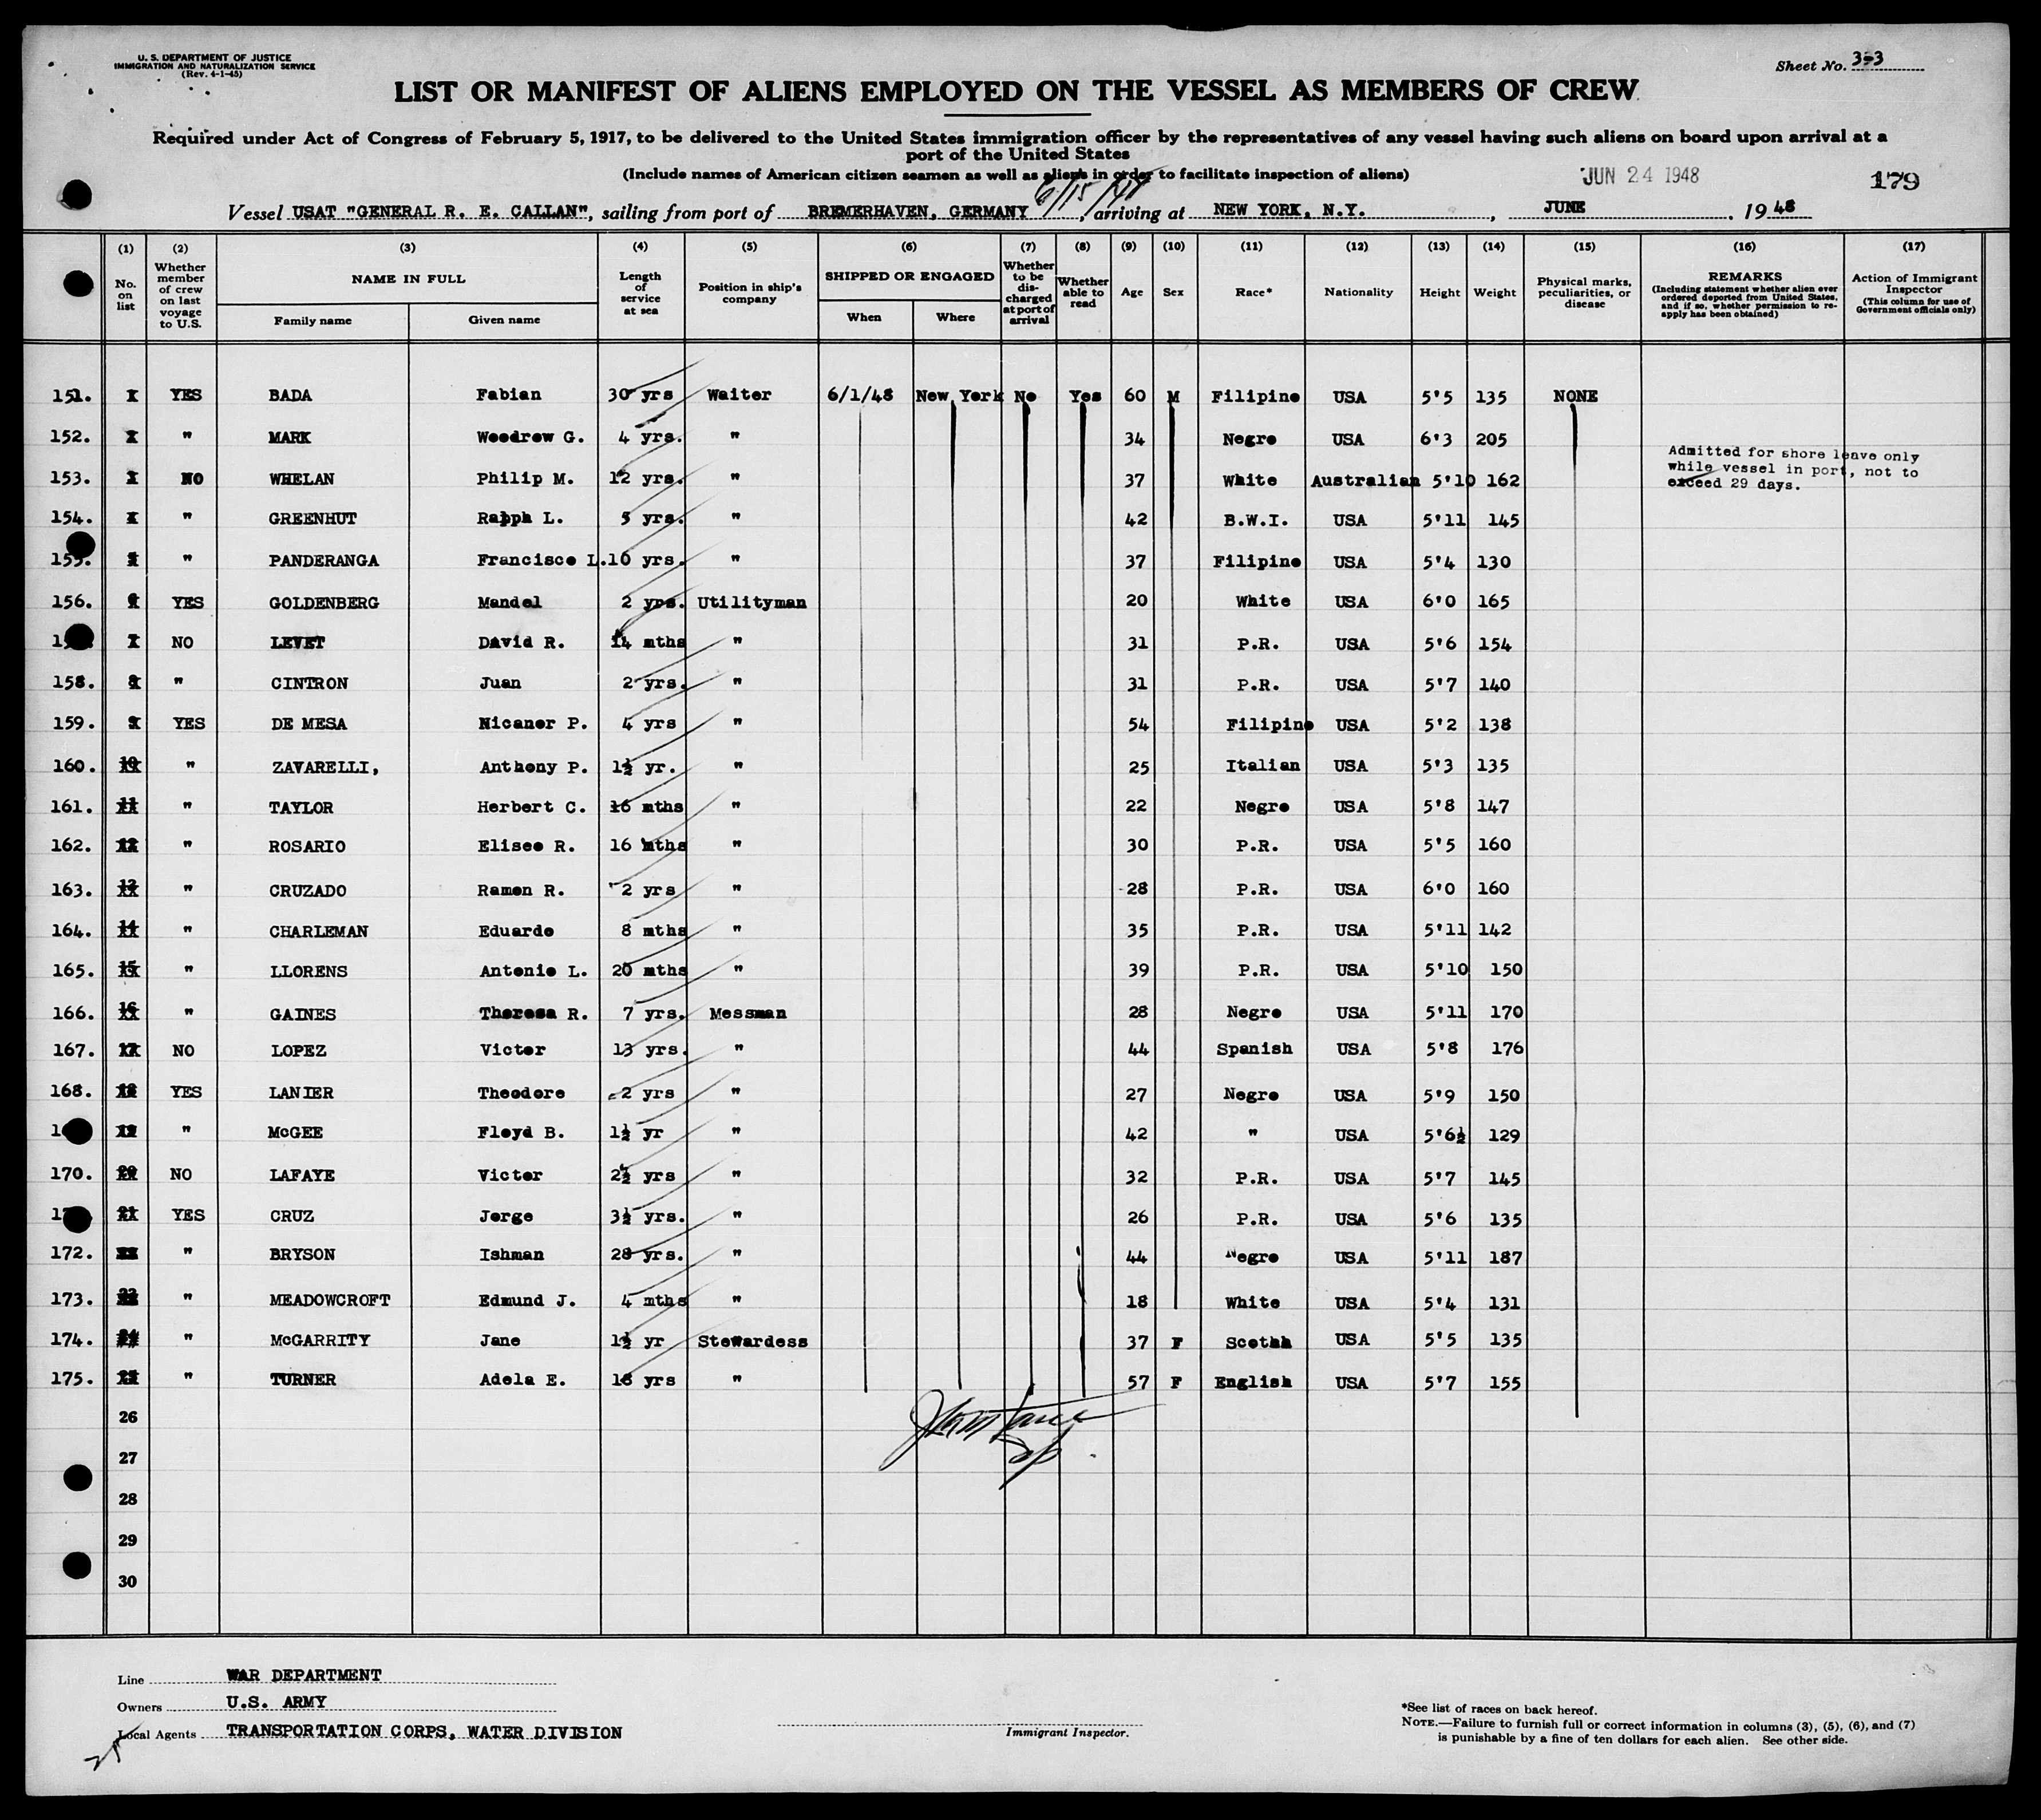 U. S. DEPARTMENT OF JUSTICE
IMMIGRATION AND NATURALIZATION SERVICE
(Rev. 4-1-45)
Sheet No. 3-3
LIST OR MANIFEST OF ALIENS EMPLOYED ON THE VESSEL AS MEMBERS OF CREW
Required under Act of Congress of February 5, 1917, to be delivered to the United States immigration officer by the representatives of any vessel having such aliens on board upon arrival at a
port of the United States
(Include names of American citizen seamen as well as aliens in order to facilitate inspection of aliens)
JUN 24 1948
179
6/15/48
Vessel USAT "GENERAL R. E. CALLAN", sailing from port of BREMERHAVEN, GERMANY, arriving at NEW YORK, N.Y., JUNE, 1948
(1) (2) (3) (4) (5) (6) (7) (8) (9) (10) (11) (12) (13) (14) (15) (16) (17)
No. on list
Whether member of crew on last voyage to U.S.
NAME IN FULL
Family name
Given name
Length of service at sea
Position in ship's company
SHIPPED OR ENGAGED
When
Where
Whether to be discharged at port of arrival
Whether able to read
Age
Sex
Race*
Nationality
Height
Weight
Physical marks, peculiarities, or disease
REMARKS
(Including statement whether alien ever ordered deported from United States, and if so, whether permission to re-apply has been obtained)
Action of Immigrant Inspector
(This column for use of Government officials only)
151. YES BADA Fabian 30 yrs Waiter 6/1/48 New York No Yes 60 M Filipino USA 5'5 135 NONE
152. " MARK Woodrow G. 4 yrs. " 34 Negro USA 6'3 205
153. NO WHELAN Philip M. 12 yrs. " 37 White Australian 5'10 162
Admitted for shore leave only
while vessel in port, not to
exceed 29 days.
154. " GREENHUT Ralph L. 5 yrs. " 42 B.W.I. USA 5'11 145
155. " PANDERANGA Francisco L. 10 yrs. " 37 Filipino USA 5'4 130
156. YES GOLDENBERG Mandel 2 yrs. Utilityman 20 White USA 6'0 165
7 NO LEVET David R. 14 mths " 31 P.R. USA 5'6 154
158. 8 " CINTRON Juan 2 yrs. " 31 P.R. USA 5'7 140
159. 9 YES DE MESA Nicanor P. 4 yrs " 54 Filipino USA 5'2 138
160. 10 " ZAVARELLI, Anthony P. 1½ yr. " 25 Italian USA 5'3 135
161. 11 " TAYLOR Herbert C. 16 mths " 22 Negro USA 5'8 147
162. 12 " ROSARIO Eliseo R. 16 mths " 30 P.R. USA 5'5 160
163. 13 " CRUZADO Ramon R. 2 yrs " 28 P.R. USA 6'0 160
164. 14 " CHARLEMAN Eduardo 8 mths " 35 P.R. USA 5'11 142
165. 15 " LLORENS Antonio L. 20 mths " 39 P.R. USA 5'10 150
166. 16 " GAINES Theresa R. 7 yrs. Messman 28 Negro USA 5'11 170
167. 17 NO LOPEZ Victor 13 yrs. " 44 Spanish USA 5'8 176
168. 18 YES LANIER Theodore 2 yrs " 27 Negro USA 5'9 150
19 " McGEE Floyd B. 1½ yr " 42 " USA 5'6½ 129
170. 20 NO LAFAYE Victor 2½ yrs " 32 P.R. USA 5'7 145
21 YES CRUZ Jorge 3½ yrs. " 26 P.R. USA 5'6 135
172. 22 " BRYSON Ishman 28 yrs. " 44 Negro USA 5'11 187
173. 23 " MEADOWCROFT Edmund J. 4 mths " 18 White USA 5'4 131
174. 24 " McGARRITY Jane 1½ yr Stewardess 37 F Scotch USA 5'5 135
175. 25 " TURNER Adela E. 18 yrs " 57 F English USA 5'7 155
26
27
28
29
30
Line WAR DEPARTMENT
Owners U.S. ARMY
Local Agents TRANSPORTATION CORPS, WATER DIVISION
Immigrant Inspector.
*See list of races on back hereof.
NOTE.—Failure to furnish full or correct information in columns (3), (5), (6), and (7)
is punishable by a fine of ten dollars for each alien. See other side.